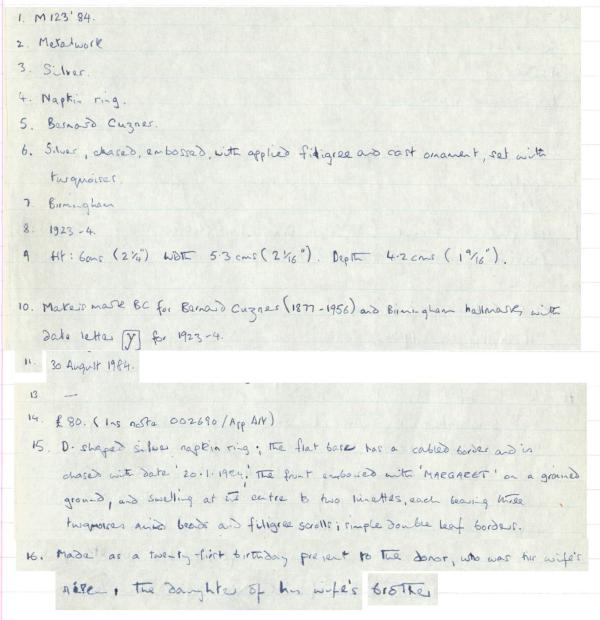 1. M 123'84.
2. Metalwork
3. Silver.
4. Napkin ring.
5. Bernard Cuzner.
6. Silver, chased, embossed, with applied filigree and cast ornament, set with
turquoises.
7. Birmingham
8. 1923-4.
9 Ht: 6cms (2¼") Width 5.3 cms (2 1/16"). Depth 4.2 cms (1 9/16").
10. Maker's mark BC for Bernard Cuzner (1877-1956) and Birmingham hallmarks with
date letter y for 1923-4.
11. 30 August 1984.
13 —
14. £80. (Ins note 002690/App A/V)
15. D-shaped silver napkin ring; the flat base has a cabled border and is
chased with date '20.1.1924.' The front embossed with 'MARGARET' on a grained
ground, and swelling at its centre to two lunettes, each bearing three
turquoises amid beads and filigree scrolls; simple double leaf borders.
16. Made as a twenty-first birthday present to the donor, who was his wife's
niece, the daughter of his wife's brother